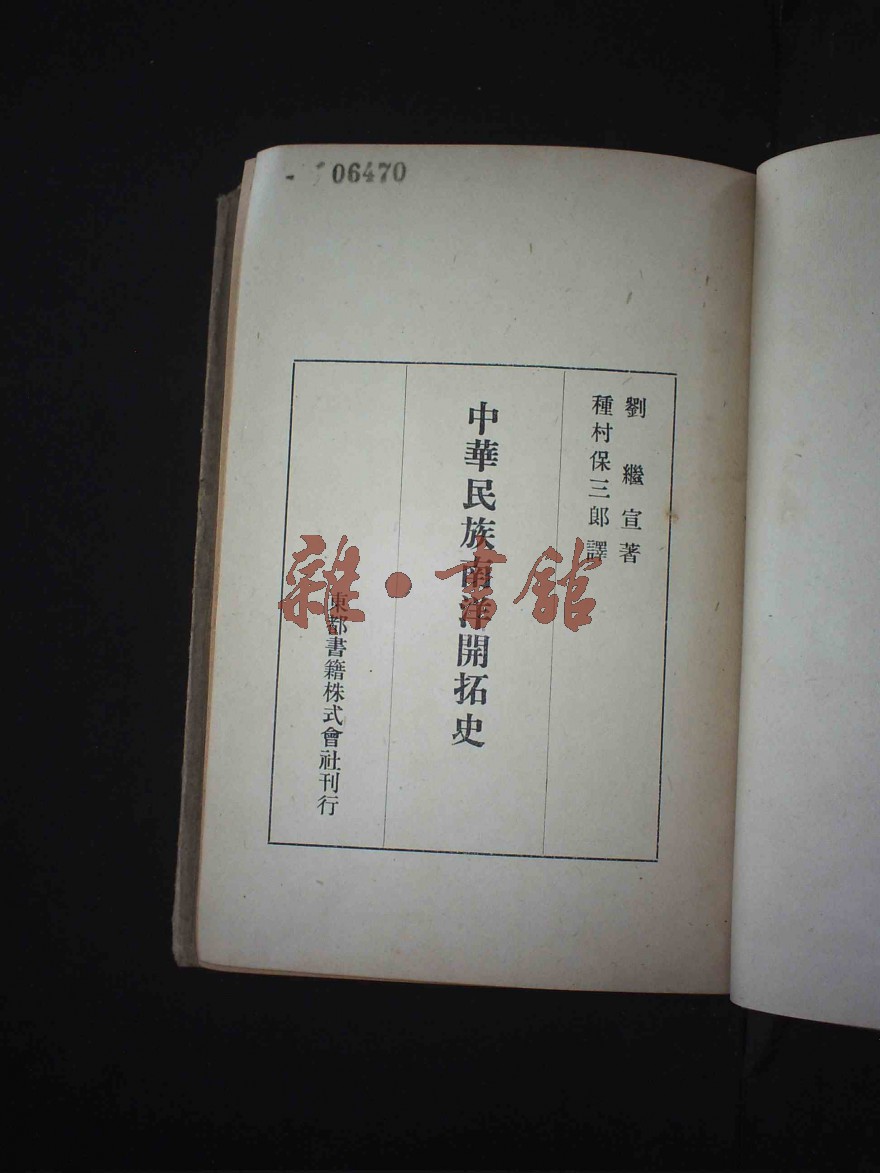 06470
劉繼宣著
種村保三郎譯
中華民族南洋開拓史
東都書籍株式會社刊行
雜·書館